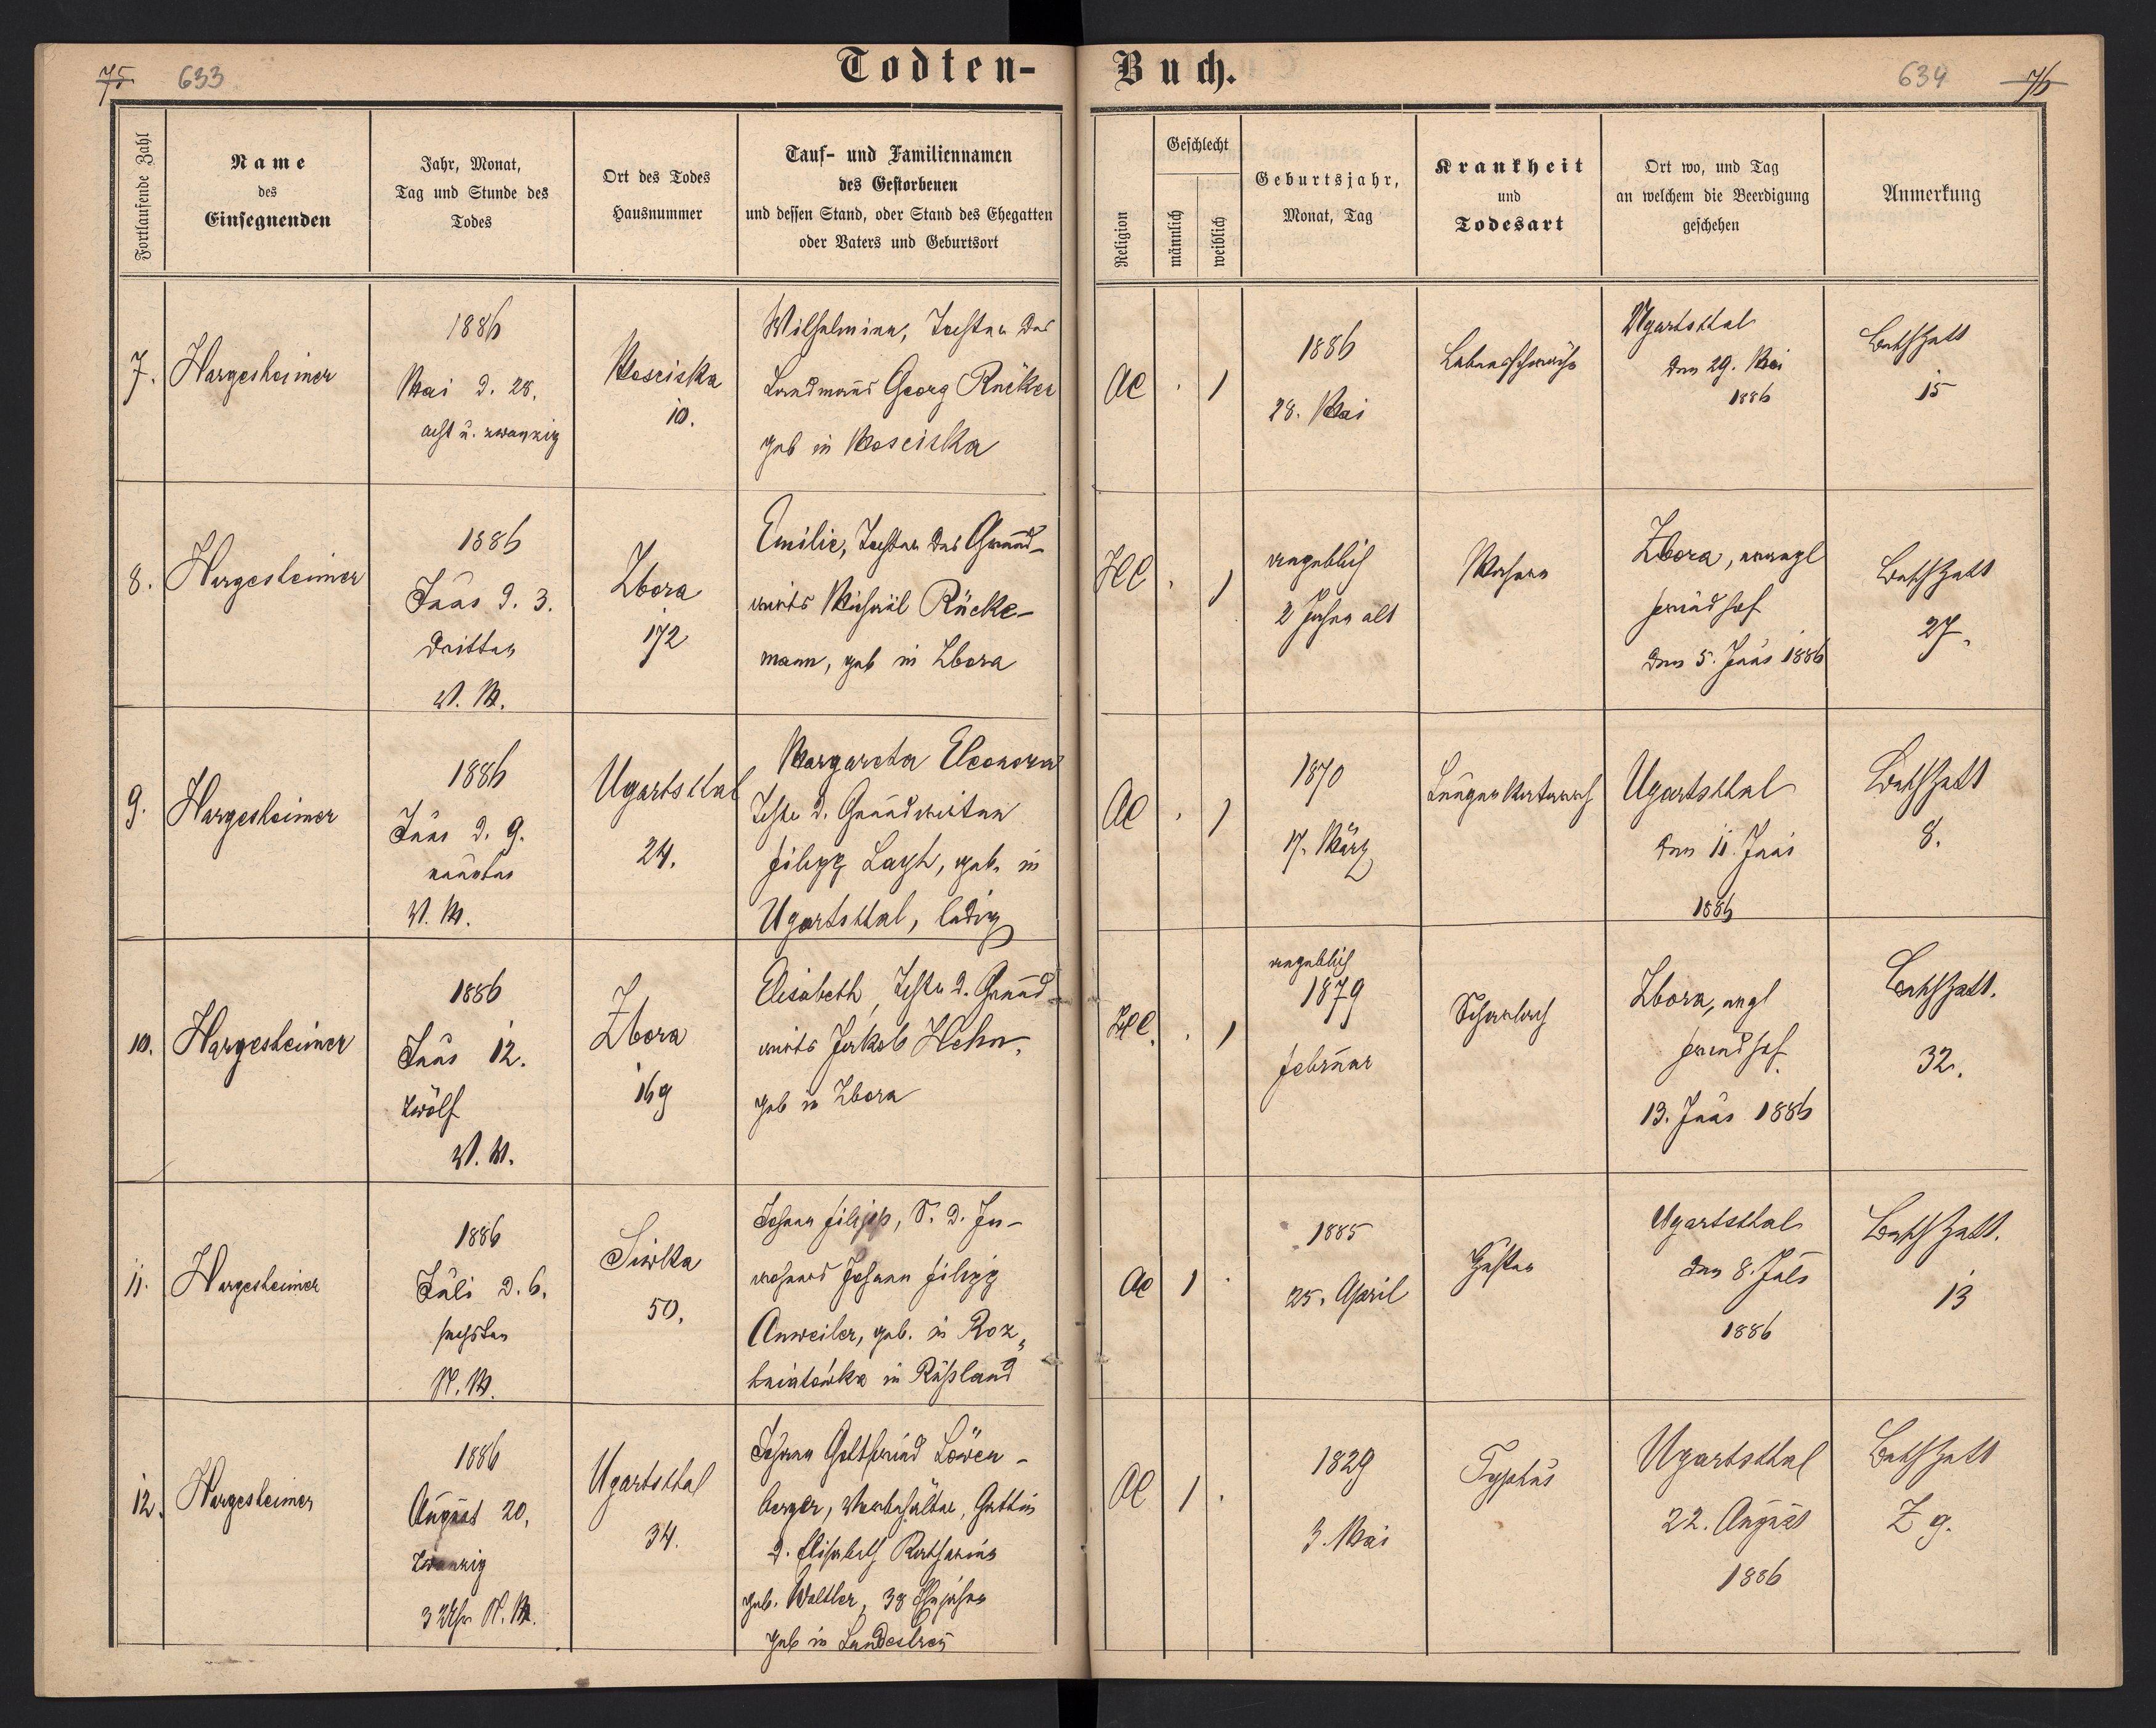 75. 633
Todten-Buch.
634 76
Fortlaufende Zahl
Name
des
Einsegnenden
Jahr, Monat,
Tag und Stunde des
Todes
Ort des Todes
Hausnummer
Tauf- und Familiennamen
des Gestorbenen
und dessen Stand, oder Stand des Ehegatten
oder Vaters und Geburtsort
Religion
Geschlecht
männlich
weiblich
Geburtsjahr,
Monat, Tag
Krankheit
und
Todesart
Ort wo, und Tag
an welchem die Beerdigung
geschehen
Anmerkung
7.
Hargesheimer
1886
Mai d. 28.
acht u. zwanzig
Mosciska
10.
Wilhelmine, Tochter des
Landmanns Georg Rücker
geb in Mosciska
AC
1
1886
28. Mai
Lebensschwäche
Ugartsthal
den 29. Mai
1886
15
8.
Hargesheimer
1886
Juni d. 3.
dritten
V. M.
Zbora
172
Emilie, Tochter des Grund-
wirts Michael Rücke-
mann, geb in Zbora
HC
1
angeblich
2 Jahre alt
Masern
Zbora, evangl
Friedhof
den 5. Juni 1886
27.
9.
Hargesheimer
1886
Juni d. 9.
neunten
V. M.
Ugartsthal
24.
Margareta Eleonora
Tochter d. Grundwirten
Filipp, geb. in
Ugartsthal, ledig
AC
1
1870
17. März
Lungenkatarrh
Ugartsthal
den 11. Juni
1886
8.
10.
Hargesheimer
1886
Juni 12.
zwölf
V. M.
Zbora
169
Elisabeth, Tochter d. Grund
wirts Jakob Hehn,
geb in Zbora
HC.
1
angeblich
1879
Februar
Scharlach
Zbora, evgl
Friedhof
13. Juni 1886
32.
11.
Hargesheimer
1886
Juli d. 6.
sechsten
N. M.
Siwka
50.
Johann Filipp, S. d. In-
wohners Johann Filipp
Anweiler, geb. in Roz-
in Rußland
AC
1
1885
25. April
Husten
Ugartsthal
den 8. Juli
1886
13
12.
Hargesheimer
1886
August 20.
zwanzig
3 Uhr N. M.
Ugartsthal
34.
Johann Gottfried Löwen-
berger, Vorbehälter, Gatte
d. Elisabeth Katharina
geb. Waltler, 38 Ehejahre
geb in Landestreu
AC
1
1829
3. Mai
Typhus
Ugartsthal
22. August
1886
Z 9.